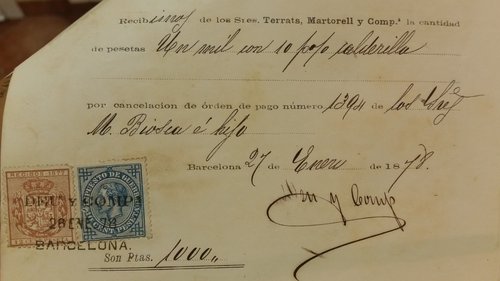 Recibimos de los Sres. Terrats, Martorell y Comp.ª la cantidad
de pesetas Un mil con 10 p% calderilla
por cancelacion de órden de pago número 1394 de los
M. Biosca é hijo
Barcelona 27 Enero de 1878.
y Comp
RECIBOS 1877
IMPUESTO DE GUERRA
DEU Y COMPA
26 ENE 78
BARCELONA.
Son Ptas. 1000,,